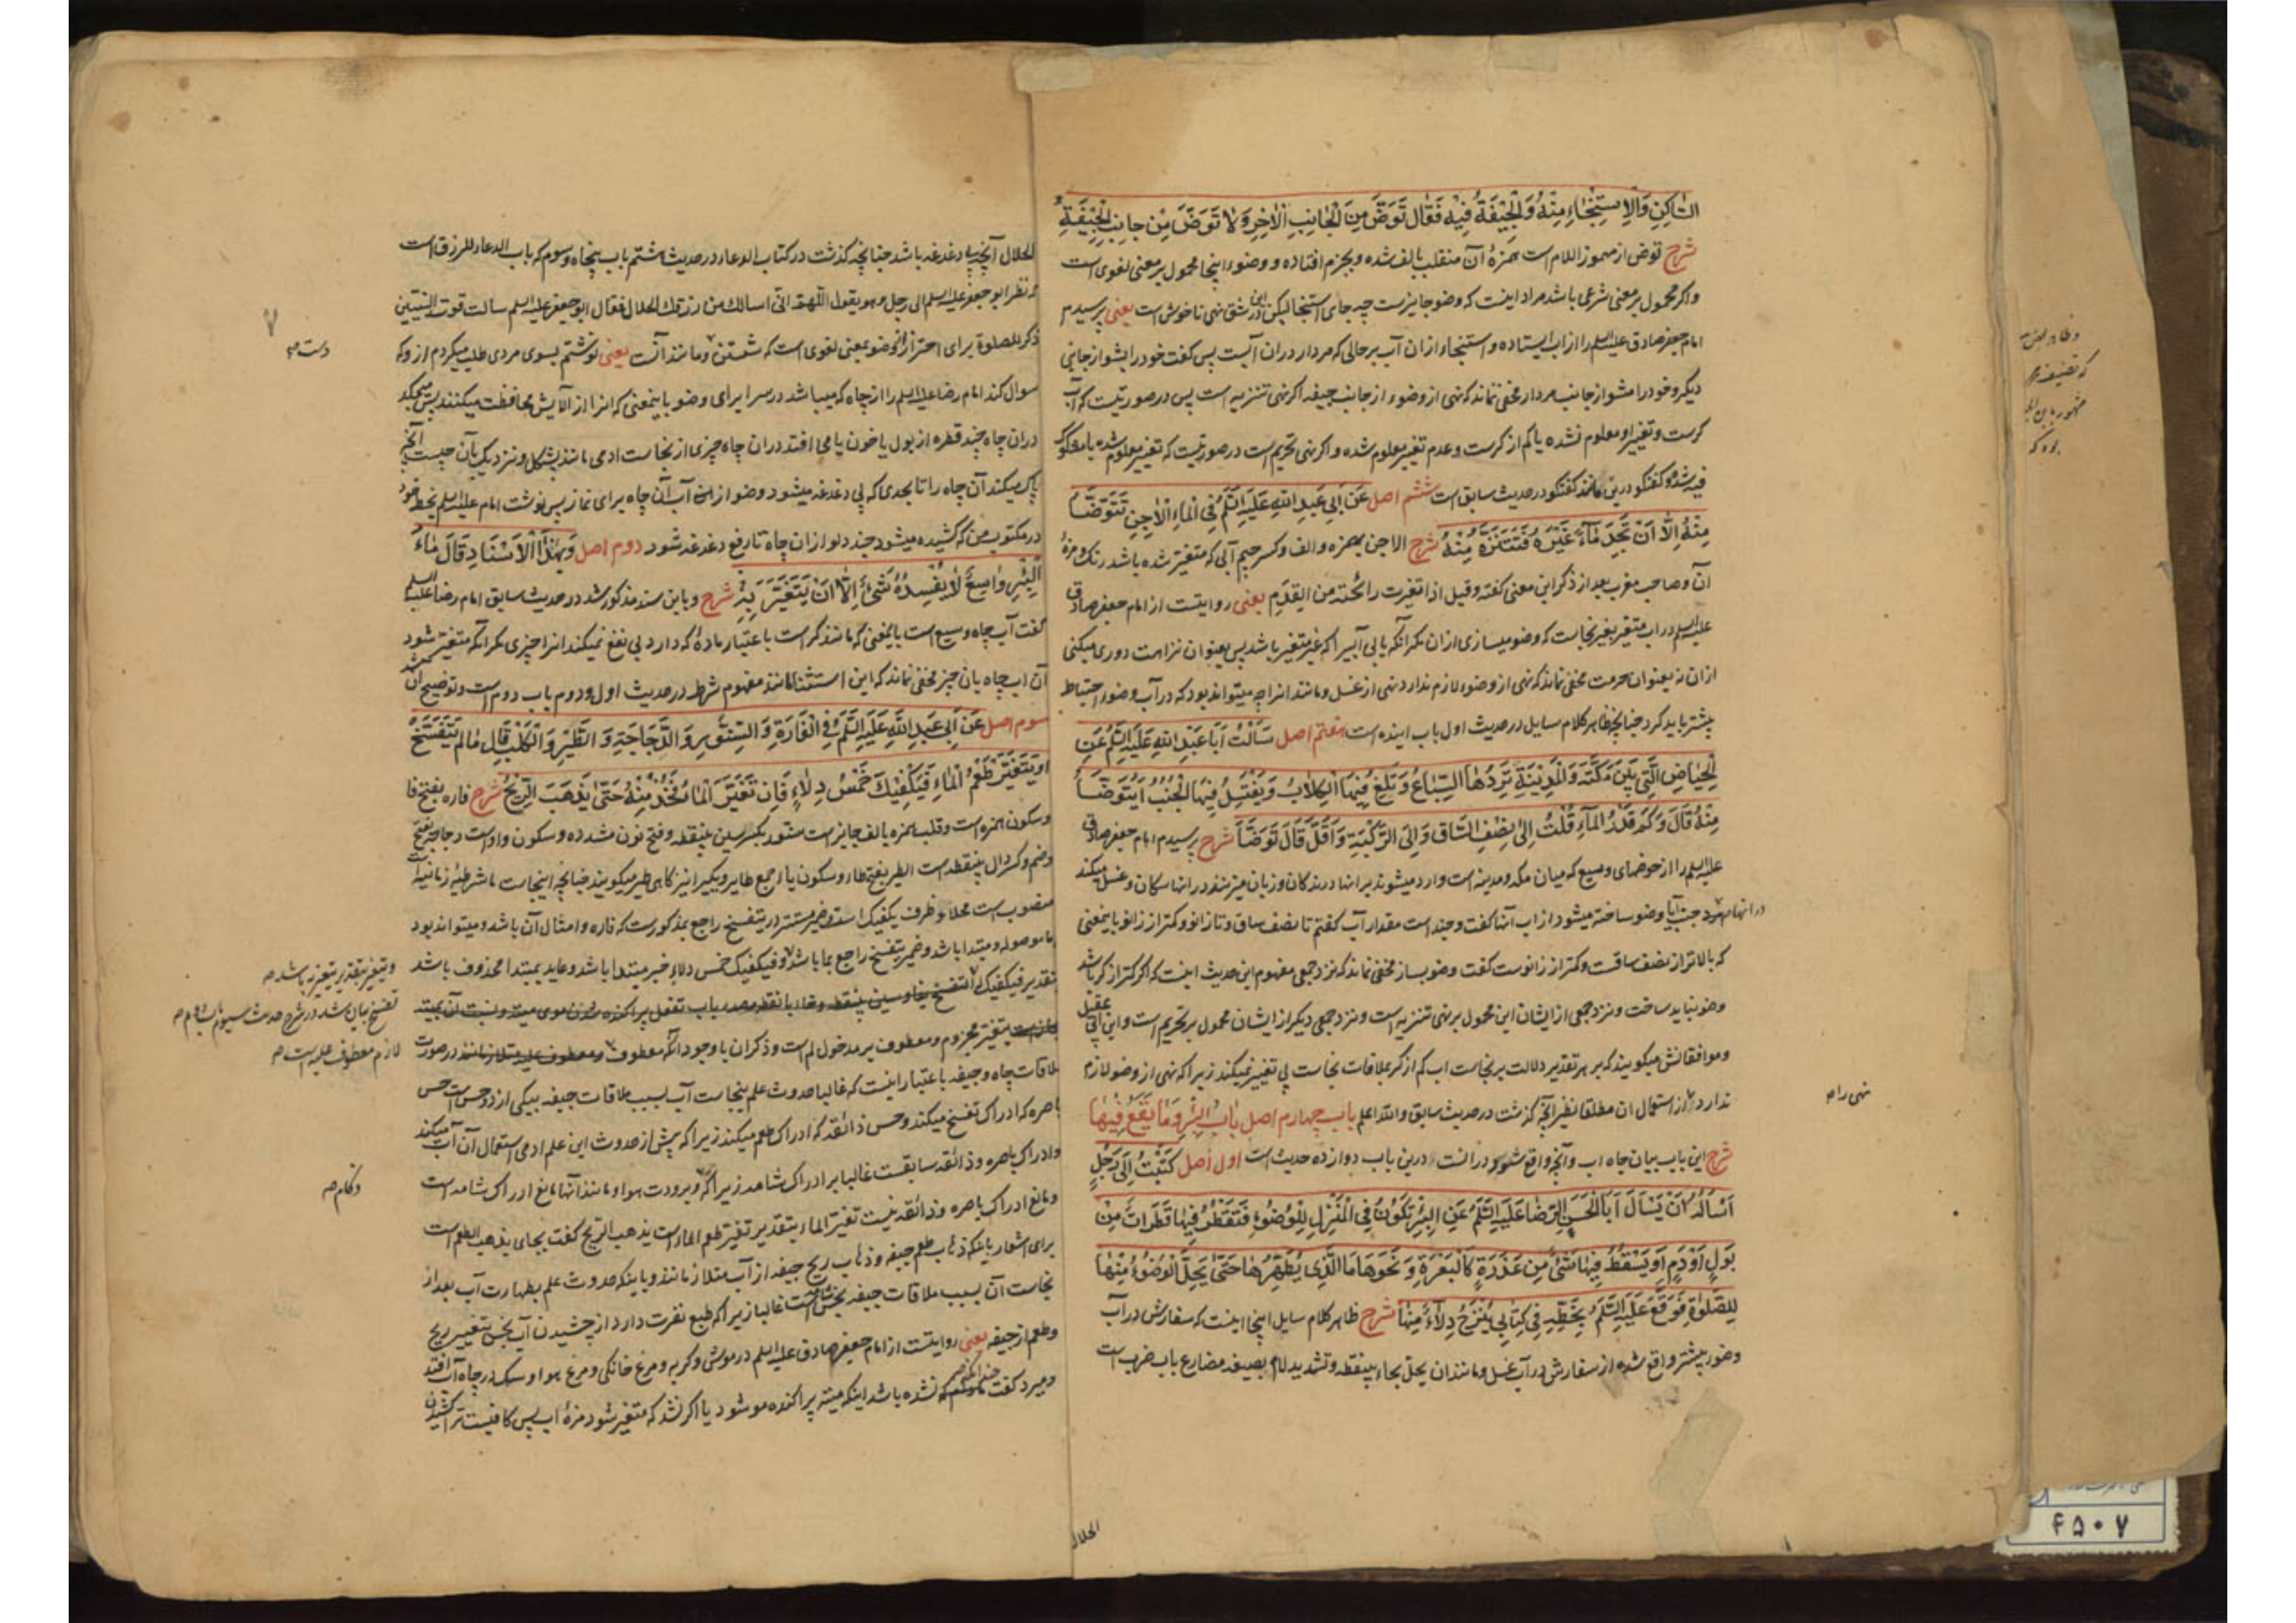 السَّاكِنِ وَالِاسْتِنْجَاءِ مِنْهُ وَالْجِيفَةُ فِيهِ فَقَالَ تَوَضَّ مِنَ الْجَانِبِ الْآخَرِ وَلَا تَوَضَّ مِنْ جانِبِ الْجِيفَةِ
شرح توض از مهموز اللام است همزهٔ آن منقلب بالف شده و بجزم افتاده و وضوء اینجا محمول بر معنی لغوی است
و اکر محمول بر معنی شرعی باشد مراد اینست که وضو جایزست چه جای استنجا لیکن این شق نهی ناخوش است یعنی پرسیدم
امام جعفر صادق علیه السلم را از اب ایستاده و استنجاء ازان آب بر حالی که مردار دران آبست پس کفت خود را بشو از جانبی
دیکر و خود را مشو از جانب مردار مخفی نماند که نهی از وضوء از جانب جیفه اکر نهی تنزیه است پس در صورتیست که آب
کرست و تغییر او معلوم نشده یا کم از کرست و عدم تغییر معلوم شده و اکر نهی تحریم است در صورتیست که تغییر معلوم شده یا مشکوک
فیه شده و کفتکو درین مانند کفتکو در حدیث سابق است ششم اصل عَنْ أَبِي عَبْدِ اللهِ عَلَيْهِ السَّلَمُ فِي الْمَاءِ الْآجِنِ تَتَوَضَّأُ
مِنْهُ إِلَّا أَنْ تَجِدَ مَاءً غَيْرَهُ فَتَنَزَّهَ مِنْهُ شرح الاجن بهمزه و الف و کسر جیم آبی که متغیر شده باشد رنک و مزهٔ
آن و صاحب مغرب بعد از ذکر این معنی کفته و قیل اذا تغیرت رائحته من القِدَم یعنی روایتست از امام جعفر صادق
علیه السلم در اب متغیر بغیر نجاست که وضو میسازی ازان مکر آنکه یابی آبی را که غیر متغیر باشد پس بعنوان نزاهت دوری میکنی
ازان نه بعنوان حرمت مخفی نماند که نهی از وضوء لازم ندارد نهی از غسل و مانند انرا چه میتواند بود که در آب وضوء احتیاط
بیشتر باید کرد چنانچه ظاهر کلام سایل در حدیث اول باب اینده است هفتم اصل سَأَلْتُ أَبَا عَبْدِ اللهِ عَلَيْهِ السَّلَمُ عَنِ
الْحِيَاضِ الَّتِي بَيْنَ مَكَّةَ وَالْمَدِينَةِ تَرِدُهَا السِّبَاعُ وَتَلِغُ فِيهَا الْكِلَابُ وَيَغْتَسِلُ فِيهَا الْجُنُبُ أَيُتَوَضَّأُ
مِنْهُ قَالَ وَكَمْ قَدْرُ الْمَآءِ قُلْتُ إِلَى نِصْفِ السَّاقِ وَإِلَى الرُّكْبَةِ وَأَقَلَّ قَالَ تَوَضَّأْ شرح پرسیدم امام جعفر صادق
علیه السلم را از حوضهای وسیع که میان مکه و مدینه است وارد میشوند بر انها درندکان و زبان میزنند در انها سکان و غسل میکند
در انها مرد جنب آیا وضو ساخته میشود از اب آنها کفت و چند است مقدار آب کفتم تا نصف ساق و تا زانو و کمتر از زانو باینمعنی
که بالاتر از نصف ساقست و کمتر از زانوست کفت وضو بساز مخفی نماند که نزد جمعی مفهوم این حدیث اینست که اکر کمتر از کر باشد
وضو نباید ساخت و نزد جمعی از ایشان این محمول بر نهی تنزیه است و نزد جمعی دیکر از ایشان محمول بر تحریم است و ابن ابی عقیل
و موافقانش میکویند که بر هر تقدیر دلالت بر نجاست اب کم از کر بملاقات نجاست بی تغییر نمیکند زیرا که نهی از وضو لازم
ندارد از استعمال ان مطلقا نظیر آنچه کذشت در حدیث سابق والله اعلم باب چهارم اصل بَابُ الْبِئْرِ وَمَا يَقَعُ فِيهَا
نهی را صح
شرح این باب بیان چاه اب و آنچه واقع شود در انست درین باب دوازده حدیث است اول اصل كَتَبْتُ إِلَى رَجُلٍ
أَسْأَلُهُ أَنْ يَسْأَلَ أَبَا الْحَسَنِ الرِّضَا عَلَيْهِ السَّلَمُ عَنِ الْبِئْرِ تَكُونُ فِي الْمَنْزِلِ لِلْوُضُوءِ فَتَقْطُرُ فِيهَا قَطَرَاتٌ مِنْ
بَوْلٍ أَوْ دَمٍ أَوْ يَسْقُطُ فِيهَا شَيْءٌ مِنْ عَذِرَةٍ كَالْبَعْرَةِ وَنَحْوِهَا مَا الَّذِي يُطَهِّرُهَا حَتَّى يَحِلَّ الْوُضُوءُ مِنْهَا
لِلصَّلَوةِ فَوَقَّعَ عَلَيْهِ السَّلَمُ بِخَطِّهِ فِي كِتَابِي يُنْزَحُ دِلَاءٌ مِنْهَا شرح ظاهر کلام سایل اینجا اینست که سفارش در آب
وضو بیشتر واقع شده از سفارش در آب غسل و مانند ان یحل بحاء بینقطه و تشدید لام بصیغه مضارع باب ضرب است
الحلال
الحلال آنچه بی دغدغه باشد چنانچه کذشت در کتاب الدعاء در حدیث هشتم باب پنجاه و سوم که باب الدعاء للرزق است
که نظر ابو جعفر علیه السلم الی رجل وهو یقول اللهم انی اسالک من رزقک الحلال فقال ابو جعفر علیه السلم سالت قوت النبیین
ذکر للصلوة برای احتراز از وضو بمعنی لغوی است که شستن و مانند آنست یعنی نوشتم بسوی مردی طلب میکردم ازو که
دست صح
سوال کند امام رضا علیه السلم را از چاه که میباشد در سرا برای وضو باینمعنی که انرا از آلایش محافظت میکنند پس میچکد
دران چاه چند قطره از بول یا خون یا می افتد دران چاه چیزی از نجاست ادمی مانند پشکل و نزدیک بآن چیست آنچه
پاک میکند آن چاه را تا بحدی که بی دغدغه میشود وضو از ان آب آن چاه برای نماز پس نوشت امام علیه السلم بخط خود
در مکتوب من که کشیده میشود چند دلو ازان چاه تا رفع دغدغه شود دوم اصل وَبِهَذَا الْأَسْنَادِ قَالَ مَاءُ
الْبِئْرِ وَاسِعٌ لَا يُفْسِدُهُ شَيْءٌ إِلَّا أَنْ يَتَغَيَّرَ بِهِ شرح و باین سند مذکور شد در حدیث سابق امام رضا علیه السلم
کفت آب چاه وسیع است باینمعنی که مانند کر است باعتبار مادهٔ که دارد بی نفع نمیکند انرا چیزی مکر آنکه متغیر شود
آن اب چاه بان چیز مخفی نماند که این استثنا مانند مفهوم شرط در حدیث اول و دوم باب دوم است و توضیح آن شد
سوم اصل عَنْ أَبِي عَبْدِ اللَّهِ عَلَيْهِ السَّلَمُ فِي الْفَارَةِ وَالسِّنَّوْرِ وَالدَّجَاجَةِ وَالطَّيْرِ وَالْكَلْبِ قَالَ مَا لَمْ يَتَفَسَّخْ
أَوْ يَتَغَيَّرْ طَعْمُ الْمَاءِ فَيَكْفِيكَ خَمْسُ دِلَاءٍ فَإِنْ تَغَيَّرَ الْمَاءُ فَخُذْ مِنْهُ حَتَّى يَذْهَبَ الرِّيحُ شرح فاره بفتح فا
و سکون همزه است و قلب همزه بالف جایز است سنّور بکسر سین بینقطه و فتح نون مشدده و سکون واو است دجاجه بفتح
و ضم و کسر دال بینقطه است الطیر بفتح طاء و سکون یا جمع طایر و یکی را نیز کاهی طیر میکویند چنانچه اینجاست ما شرطیهٔ زمانیه
منصوب است محلا و ظرف یکفیک است و ضمیر مستتر در یتفسخ راجع بمذکورست که فاره و امثال آن باشد و میتواند بود
ما موصوله و مبتدا باشد و ضمیر یتفسخ راجع بما باشد و فیکفیک خمس دلاء خبر مبتدا باشد و عاید بمبتدا محذوف باشد
بتقدیر فیکفیک له
و یتغیر بتقدیر یتغیر به باشد صح
تفسخ بیان شد در شرح حدیث سیوم باب دوم صح
یتغیر مجزوم و معطوف بر مدخول لم است و ذکر ان با وجود آنکه معطوف در صورت
لازم معطوف علیه است صح
ملاقات چاه و جیفه باعتبار اینست که غالبا حدوث علم بنجاست آب بسبب ملاقات جیفه بیکی از دو حس است حس
باصره که ادراک تفسخ میکند و حس ذائقه که ادراک طعم میکند زیرا که پیش از حدوث این علم ادمی استعمال آن آب میکند
و ادراک باصره و ذائقه سابقست غالبا بر ادراک شامه زیرا که برودت هوا و مانند آنها مانع ادراک شامه است
و زکام صح
و مانع ادراک باصره و ذائقه نیست تغیّر الماء بتقدیر تغیر طعم الماء است یذهب الریح کفت بجای یذهب الطعم است
برای اشعار باینکه ذهاب طعم جیفه و ذهاب ریح جیفه از آب متلازمانند و باینکه حدوث علم بطهارت آب بعد از
نجاست آن بسبب ملاقات جیفه بحس شامه است غالبا زیرا که طبع نفرت دارد از چشیدن آب نجس بتغییر ریح
و طعم از جیفه یعنی روایتست از امام جعفر صادق علیه السلم در موش و کربه و مرغ خانکی و مرغ هوا و سک در چاه آب افتد
و میرد کفت نشده باشد اینکه میته پراکنده مو شود یا اکر نشد که متغیر شود مزهٔ اب پس کافیست ترا کشیدن
۷
که تصنیف
مشهور بابن
بوده که
۴۵۰۷